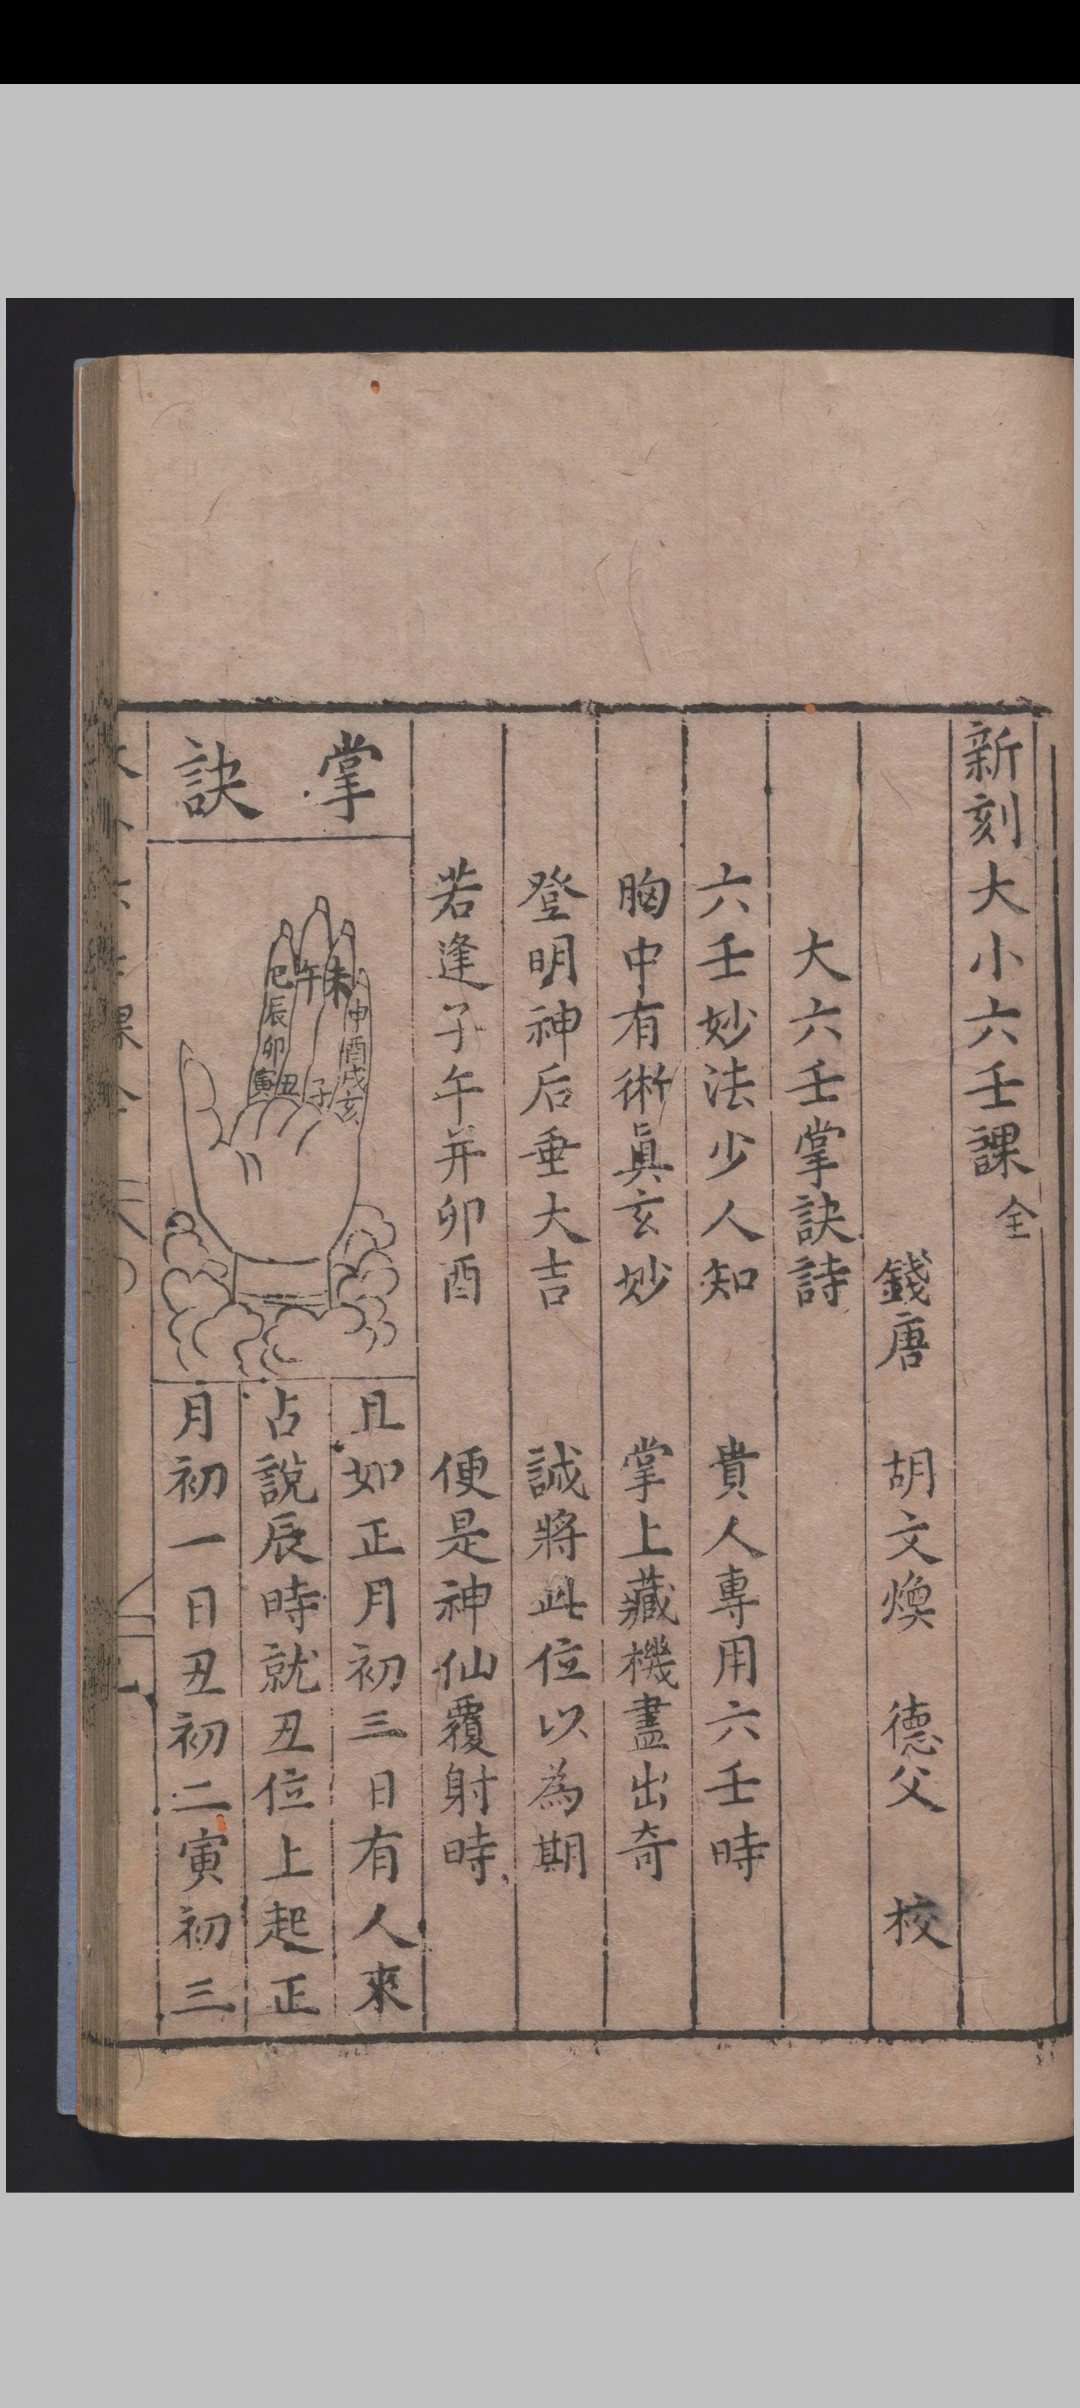 新刻大小六壬課全
錢唐　胡文煥　德父　校
大六壬掌訣詩
六壬妙法少人知　貴人專用六壬時
胸中有術眞玄妙　掌上藏機盡出奇
登明神后垂大吉　誠將此位以為期
若逢子午并卯酉　便是神仙覆射時
掌訣
未申酉戌亥
午
巳辰卯寅丑子
且如正月初三日有人來
占說辰時就丑位上起正
月初一日丑初二寅初三